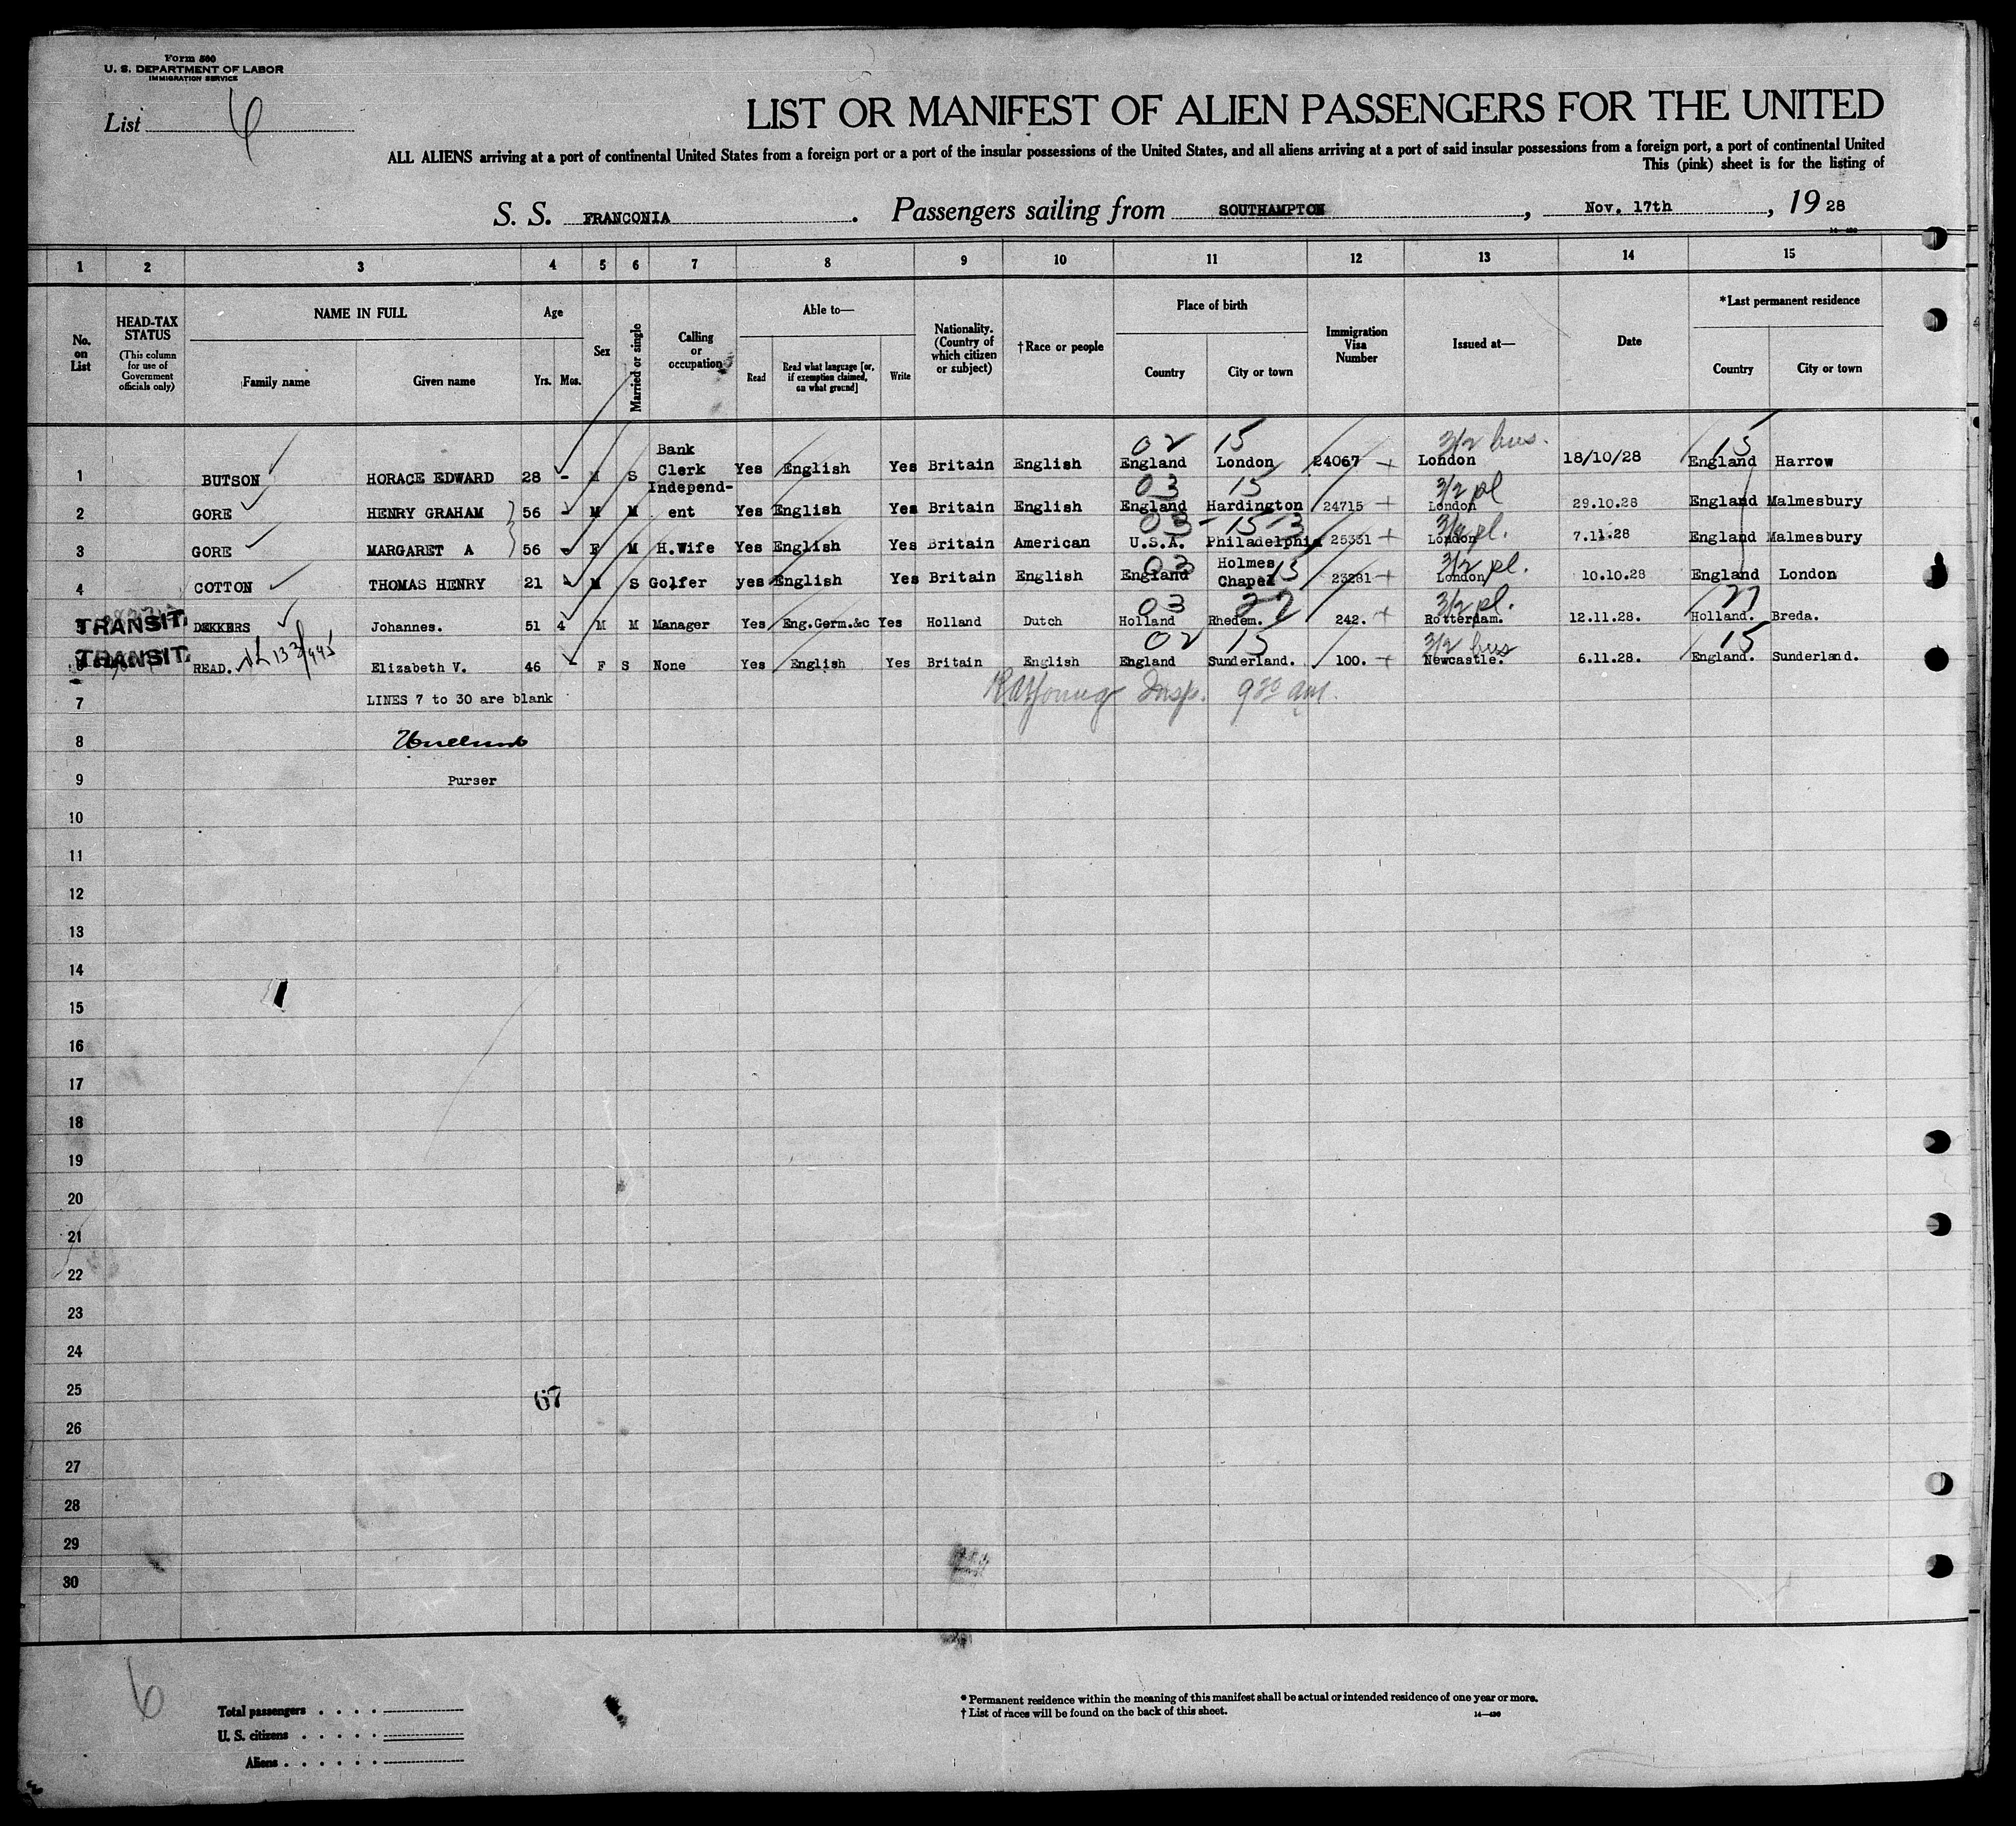 Form 500
U. S. DEPARTMENT OF LABOR
IMMIGRATION SERVICE
List 6
LIST OR MANIFEST OF ALIEN PASSENGERS FOR THE UNITED
ALL ALIENS arriving at a port of continental United States from a foreign port or a port of the insular possessions of the United States, and all aliens arriving at a port of said insular possessions from a foreign port, a port of continental United
This (pink) sheet is for the listing of
S. S. FRANCONIA. Passengers sailing from SOUTHAMPTON, Nov. 17th, 1928
1 2 3 4 5 6 7 8 9 10 11 12 13 14 15
No. on List
HEAD-TAX STATUS (This column for use of Government officials only)
NAME IN FULL Family name Given name
Age Yrs. Mos.
Sex
Married or single
Calling or occupation
Able to— Read Read what language [or, if exemption claimed, on what ground] Write
Nationality. (Country of which citizen or subject)
†Race or people
Place of birth Country City or town
Immigration Visa Number
Issued at—
Date
*Last permanent residence Country City or town
02 15 3/2 bus. 15
1 BUTSON HORACE EDWARD 28 - M S Bank Clerk Yes English Yes Britain English England London 24067 London 18/10/28 England Harrow
03 15 3/2 pl
2 GORE HENRY GRAHAM 56 - M M Independ-ent Yes English Yes Britain English England Hardington 24715 London 29.10.28 England Malmesbury
03 - 15-3 3/2 pl.
3 GORE MARGARET A 56 - F M H.Wife Yes English Yes Britain American U.S.A. Philadelphia 25331 London 7.11.28 England Malmesbury
03 15 3/2 pl.
4 COTTON THOMAS HENRY 21 - M S Golfer yes English Yes Britain English England Holmes Chapel 23281 London 10.10.28 England London
03 27 3/2 pl. 27
5 TRANSIT. DEKKERS Johannes. 51 4 M M Manager Yes Eng.Germ.&c Yes Holland Dutch Holland Rhedem. 242. Rotterdam. 12.11.28. Holland. Breda.
02 15 3/2 bus 15
6 TRANSIT. READ. Elizabeth V. 46 - F S None Yes English Yes Britain English England Sunderland. 100. Newcastle. 6.11.28. England. Sunderland.
7 LINES 7 to 30 are blank Insp. 9 30 am.
8
9 Purser
10
11
12
13
14
15
16
17
18
19
20
21
22
23
24
25 67
26
27
28
29
30
6
Total passengers
U. S. citizens
Aliens
*Permanent residence within the meaning of this manifest shall be actual or intended residence of one year or more.
†List of races will be found on the back of this sheet.
14—430